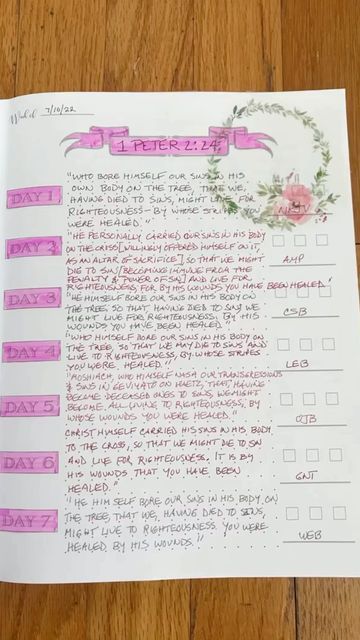 Week of 7/10/22
1 PETER 2:24
DAY 1
"WHO BORE HIMSELF OUR SINS IN HIS
OWN BODY ON THE TREE, THAT WE,
HAVING DIED TO SINS, MIGHT LIVE FOR
RIGHTEOUSNESS – BY WHOSE STRIPES YOU
WERE HEALED."
NKJV
DAY 2
"HE PERSONALLY CARRIED OUR SINS IN HIS BODY
ON THE CROSS [WILLINGLY OFFERED HIMSELF ON IT,
AS AN ALTAR OF SACRIFICE] SO THAT WE MIGHT
DIE TO SIN [BECOMING IMMUNE FROM THE
PENALTY & POWER OF SIN] AND LIVE FOR
RIGHTEOUSNESS, FOR BY HIS WOUNDS YOU HAVE BEEN HEALED."
AMP
DAY 3
"HE HIMSELF BORE OUR SINS IN HIS BODY ON
THE TREE, SO THAT, HAVING DIED TO SINS, WE
MIGHT LIVE FOR RIGHTEOUSNESS. BY HIS
WOUNDS YOU HAVE BEEN HEALED."
CSB
DAY 4
"WHO HIMSELF BORE OUR SINS IN HIS BODY ON
THE TREE, SO THAT WE MAY DIE TO SINS AND
LIVE TO RIGHTEOUSNESS, BY WHOSE STRIPES
YOU WERE HEALED."
LEB
DAY 5
"MOSHIACH, WHO HIMSELF NASA OUR TRANSGRESSIONS
& SINS IN GEVIYATO ON HAETZ, THAT, HAVING
BECOME DECEASED ONES TO SINS, WE MIGHT
BECOME ALL LIVING TO RIGHTEOUSNESS, BY
WHOSE WOUNDS YOU WERE HEALED."
OJB
DAY 6
CHRIST HIMSELF CARRIED HIS SINS IN HIS BODY
TO THE CROSS, SO THAT WE MIGHT DIE TO SIN
AND LIVE FOR RIGHTEOUSNESS. IT IS BY
HIS WOUNDS THAT YOU HAVE BEEN
HEALED."
GNT
DAY 7
"HE HIMSELF BORE OUR SINS IN HIS BODY ON
THE TREE, THAT WE, HAVING DIED TO SINS,
MIGHT LIVE TO RIGHTEOUSNESS. YOU WERE
HEALED BY HIS WOUNDS."
WEB